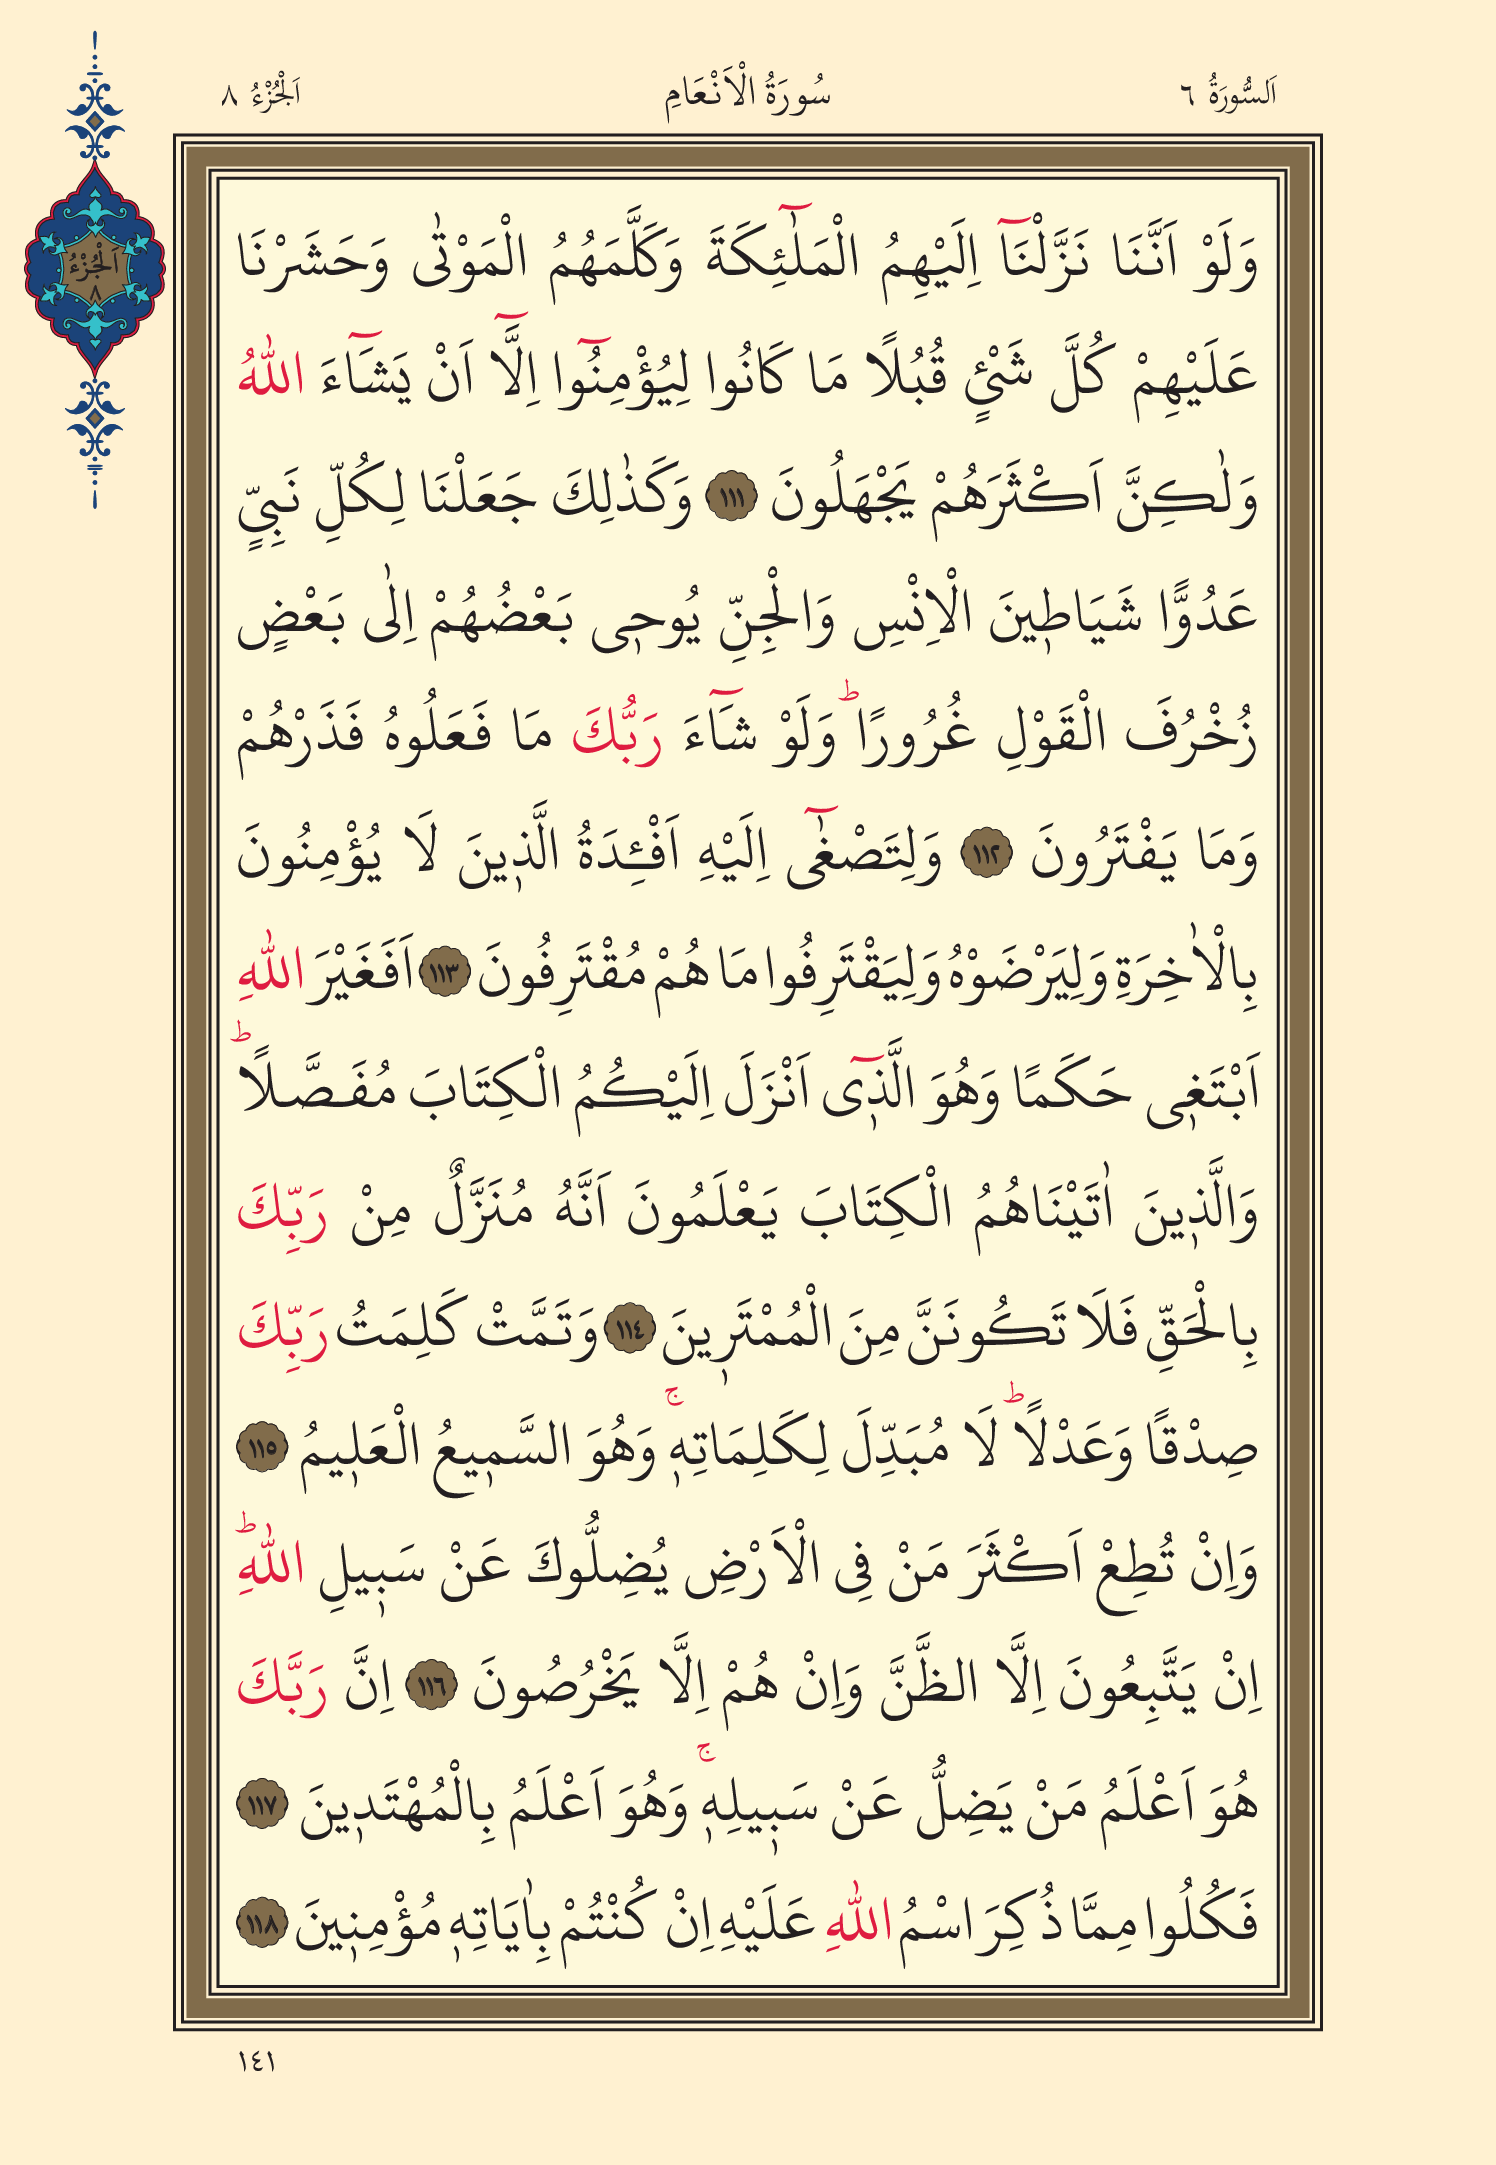 اَلسُّورَةُ ٦ سُورَةُ الْاَنْعَامِ اَلْجُزْءُ ٨
اَلْجُزْءُ
٨
وَلَوْ اَنَّنَا نَزَّلْنَٓا اِلَيْهِمُ الْمَلٰٓئِكَةَ وَكَلَّمَهُمُ الْمَوْتٰى وَحَشَرْنَا
عَلَيْهِمْ كُلَّ شَيْءٍ قُبُلًا مَا كَانُوا لِيُؤْمِنُٓوا اِلَّٓا اَنْ يَشَٓاءَ اللّٰهُ
وَلٰكِنَّ اَكْثَرَهُمْ يَجْهَلُونَ ١١١ وَكَذٰلِكَ جَعَلْنَا لِكُلِّ نَبِيٍّ
عَدُوًّا شَيَاطٖينَ الْاِنْسِ وَالْجِنِّ يُوحٖى بَعْضُهُمْ اِلٰى بَعْضٍ
زُخْرُفَ الْقَوْلِ غُرُورًاؕ وَلَوْ شَٓاءَ رَبُّكَ مَا فَعَلُوهُ فَذَرْهُمْ
وَمَا يَفْتَرُونَ ١١٢ وَلِتَصْغٰٓى اِلَيْهِ اَفْـِٔدَةُ الَّذٖينَ لَا يُؤْمِنُونَ
بِالْاٰخِرَةِ وَلِيَرْضَوْهُ وَلِيَقْتَرِفُوا مَا هُمْ مُقْتَرِفُونَ ١١٣ اَفَغَيْرَ اللّٰهِ
اَبْتَغٖى حَكَمًا وَهُوَ الَّذٖٓى اَنْزَلَ اِلَيْكُمُ الْكِتَابَ مُفَصَّلًاؕ
وَالَّذٖينَ اٰتَيْنَاهُمُ الْكِتَابَ يَعْلَمُونَ اَنَّهُ مُنَزَّلٌ مِنْ رَبِّكَ
بِالْحَقِّ فَلَا تَكُونَنَّ مِنَ الْمُمْتَرٖينَ ١١٤ وَتَمَّتْ كَلِمَتُ رَبِّكَ
صِدْقًا وَعَدْلًاؕ لَا مُبَدِّلَ لِكَلِمَاتِهٖۚ وَهُوَ السَّمٖيعُ الْعَلٖيمُ ١١٥
وَاِنْ تُطِعْ اَكْثَرَ مَنْ فِى الْاَرْضِ يُضِلُّوكَ عَنْ سَبٖيلِ اللّٰهِؕ
اِنْ يَتَّبِعُونَ اِلَّا الظَّنَّ وَاِنْ هُمْ اِلَّا يَخْرُصُونَ ١١٦ اِنَّ رَبَّكَ
هُوَ اَعْلَمُ مَنْ يَضِلُّ عَنْ سَبٖيلِهٖۚ وَهُوَ اَعْلَمُ بِالْمُهْتَدٖينَ ١١٧
فَكُلُوا مِمَّا ذُكِرَ اسْمُ اللّٰهِ عَلَيْهِ اِنْ كُنْتُمْ بِاٰيَاتِهٖ مُؤْمِنٖينَ ١١٨
١٤١